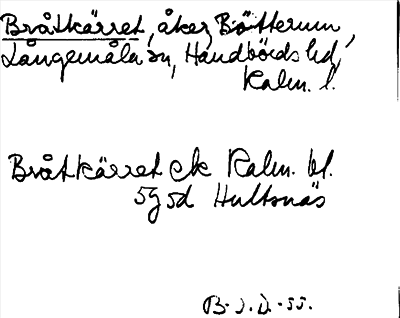 Bråtkärret, åker, Bötterum,
Långemåla sn, Handbörds hd,
Kalm. l.
Bråtkärret ek Kalm. bl.
5g 5d Hultsnäs
B.J.D. -55.